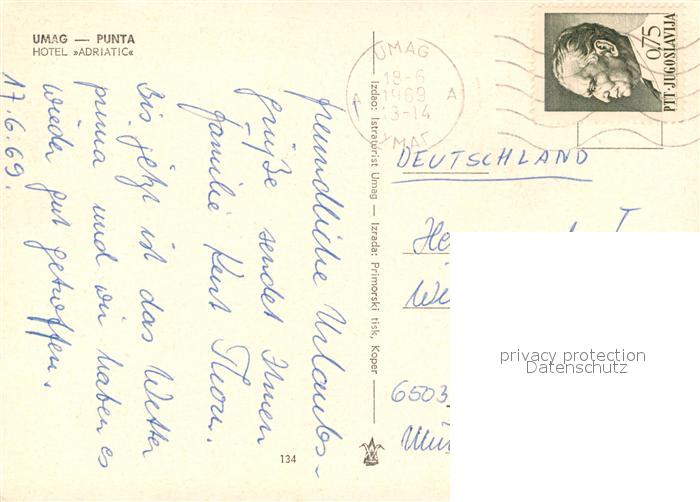 UMAG — PUNTA
HOTEL »ADRIATIC«
17.6.69.
freundliche Urlaubs-
grüße sendet Ihnen
familie Kurt Thorn.
Bis jetzt ist das Wetter
prima und wir haben es
wieder gut getroffen.
134
izdao: Istraturist Umag — Izrada: Primorski tisk, Koper
UMAG
18-6
1969
13-14
A A
UMAG
0,75
PTT-JUGOSLAVIJA
DEUTSCHLAND
He
6503
privacy protection
Datenschutz